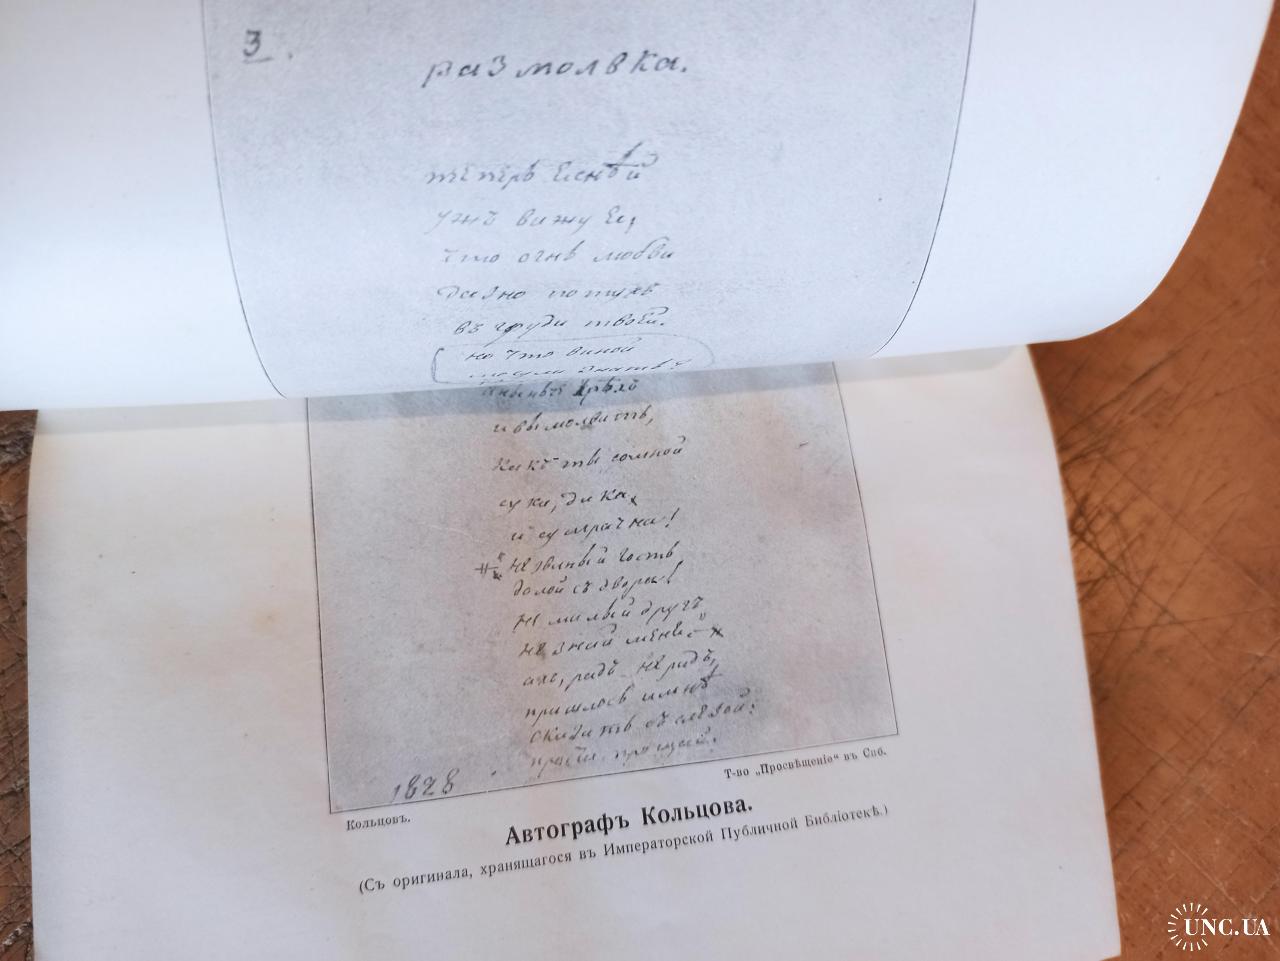 3.
размолвка.
теперь яснѣй
ужъ вижу я,
что огнь любви
давно потухъ
въ груди твоей.
но что виной
и вымолвить,
какъ ты со мной
суха, дика,
и сумрачна!
незваный гость
долой съ двора!
не милый другъ
не знай меня
ахъ, радъ не радъ,
пришлось и мнѣ
сказать съ слезой:
прости, прощай.
1828
Кольцовъ.
Т-во „Просвѣщеніе“ въ Спб.
Автографъ Кольцова.
(Съ оригинала, хранящагося въ Императорской Публичной Библіотекѣ.)
UNC.UA